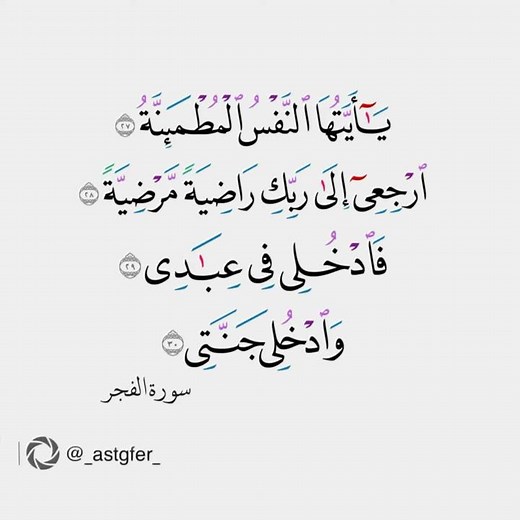 يَـٰٓأَيَّتُهَا ٱلنَّفْسُ ٱلْمُطْمَئِنَّةُ ٢٧
ٱرْجِعِىٓ إِلَىٰ رَبِّكِ رَاضِيَةً مَّرْضِيَّةً ٢٨
فَٱدْخُلِى فِى عِبَـٰدِى ٢٩
وَٱدْخُلِى جَنَّتِى ٣٠
سورة الفجر
@_astgfer_